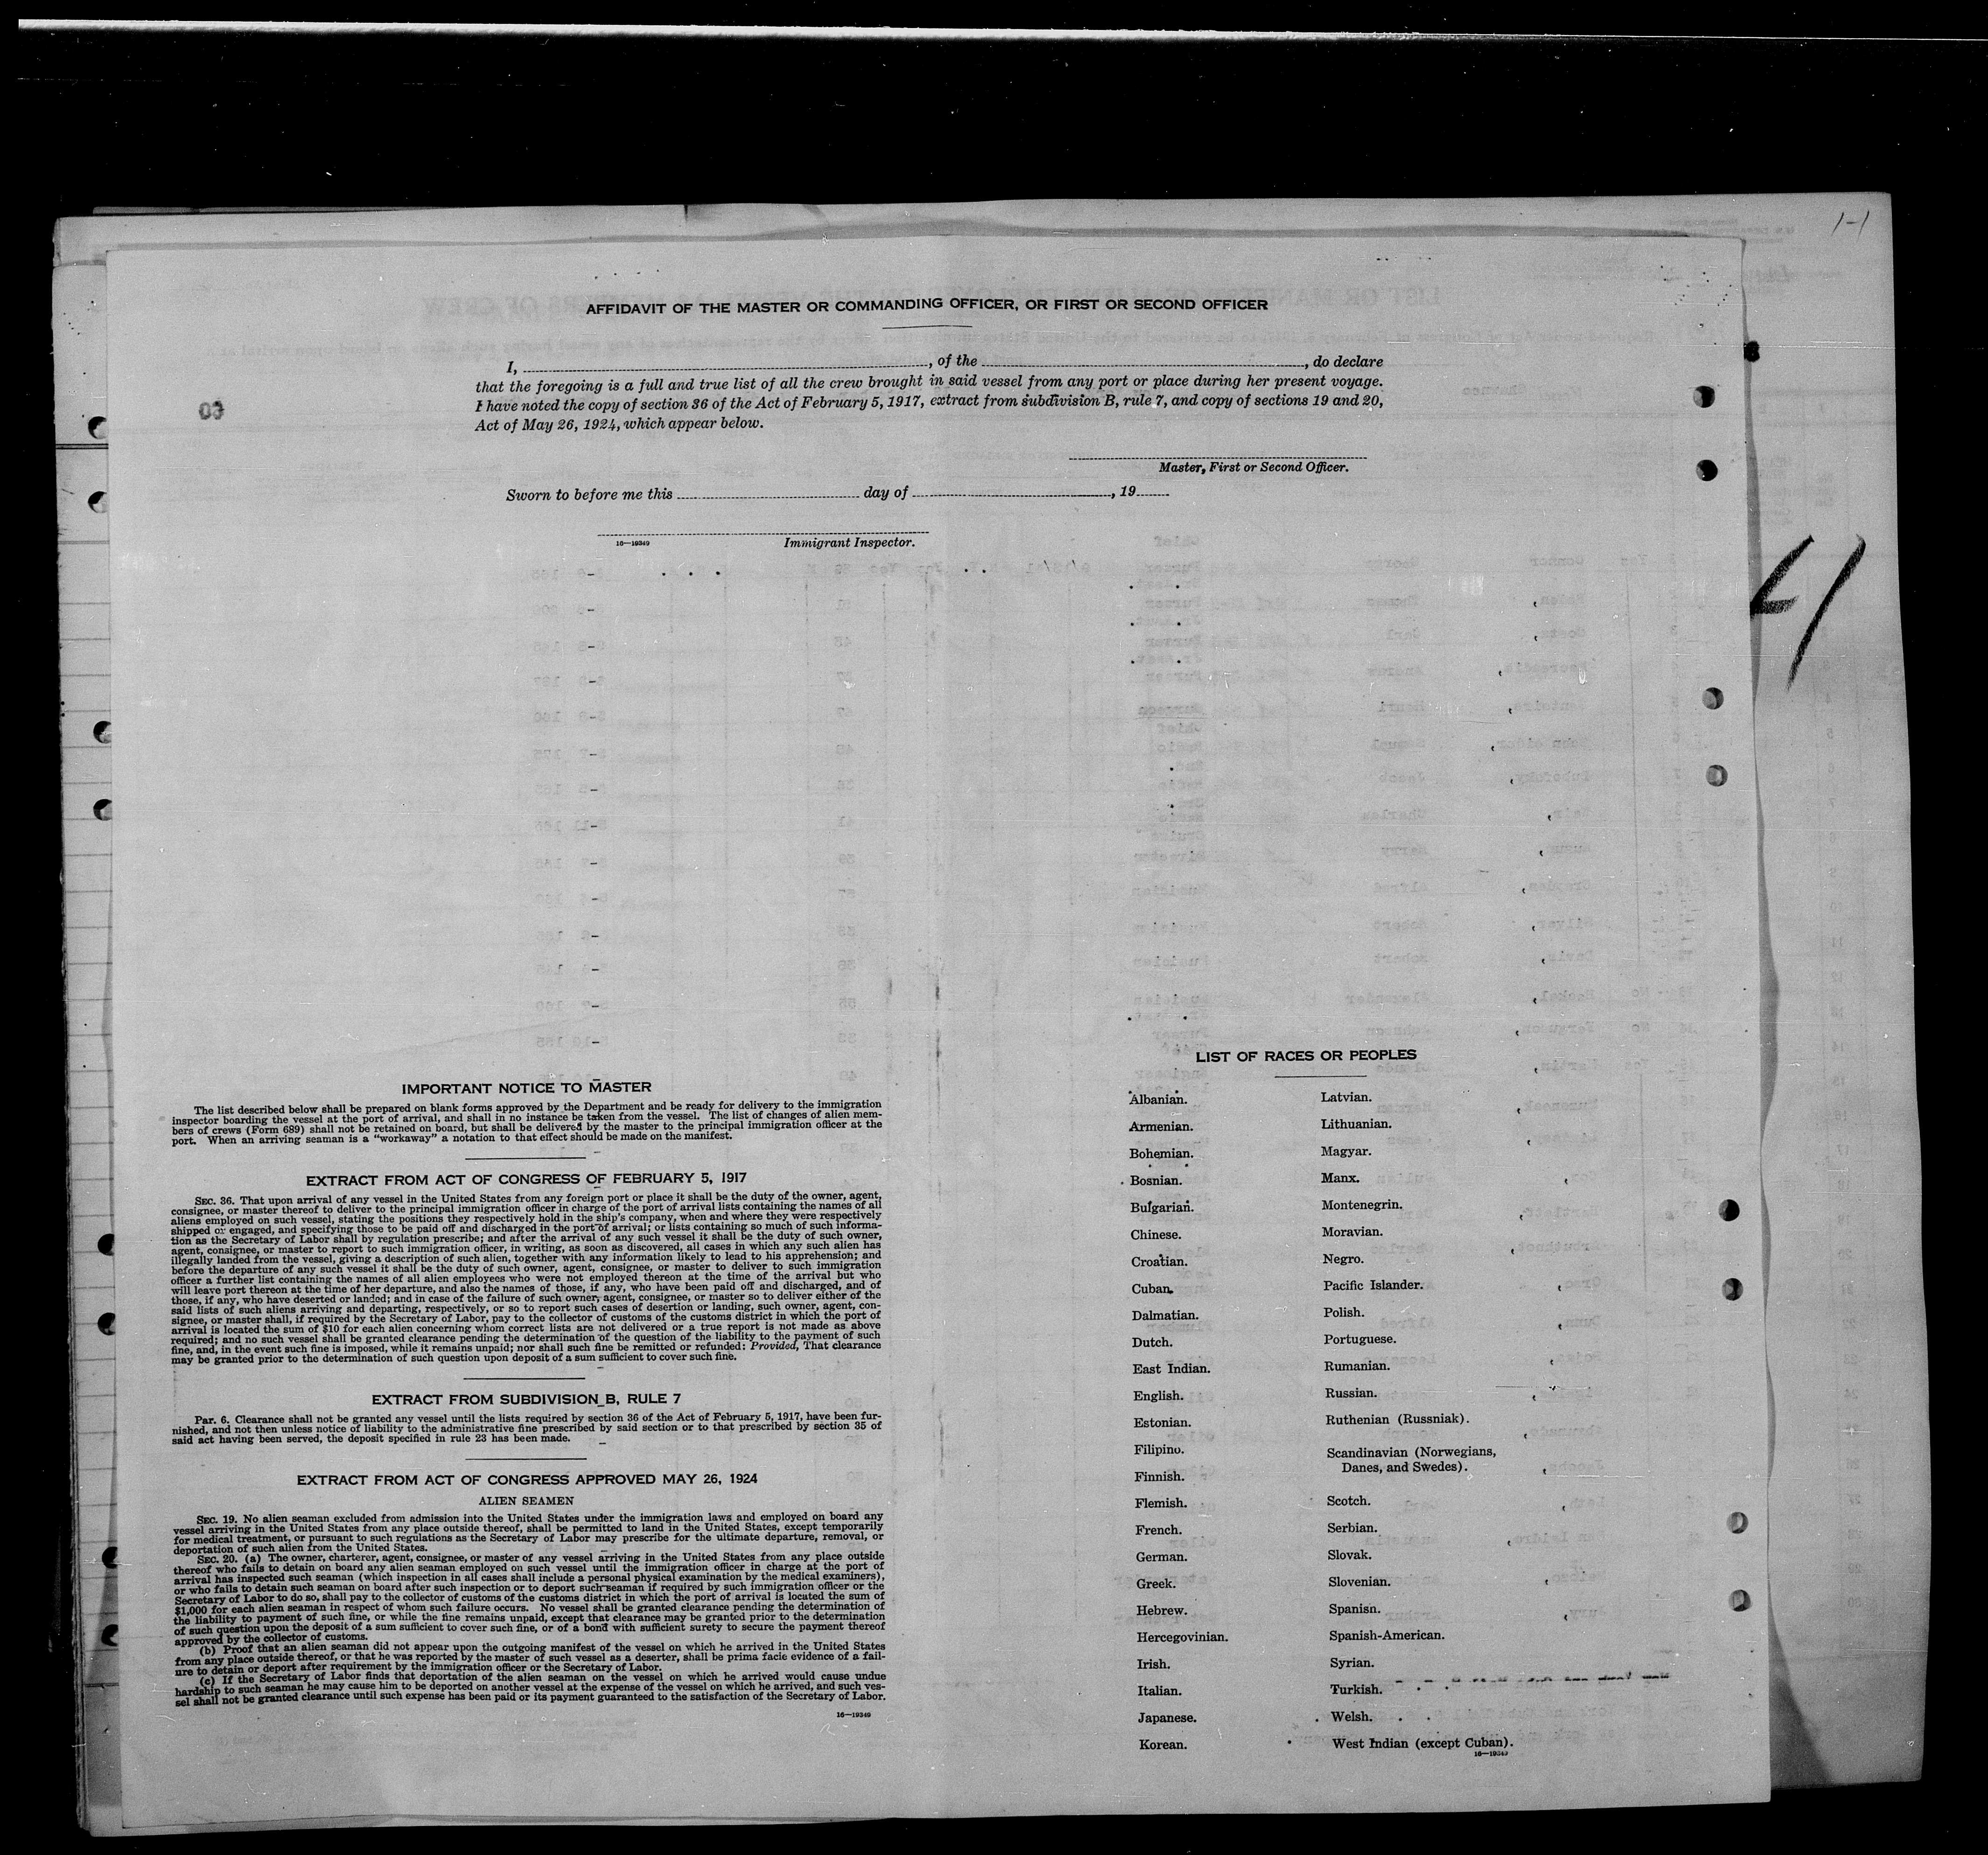 1-1
AFFIDAVIT OF THE MASTER OR COMMANDING OFFICER, OR FIRST OR SECOND OFFICER
I, , of the , do declare
that the foregoing is a full and true list of all the crew brought in said vessel from any port or place during her present voyage.
I have noted the copy of section 36 of the Act of February 5, 1917, extract from subdivision B, rule 7, and copy of sections 19 and 20,
Act of May 26, 1924, which appear below.
Master, First or Second Officer.
Sworn to before me this day of , 19
16—19349 Immigrant Inspector.
4
IMPORTANT NOTICE TO MASTER
The list described below shall be prepared on blank forms approved by the Department and be ready for delivery to the immigration
inspector boarding the vessel at the port of arrival, and shall in no instance be taken from the vessel. The list of changes of alien mem-
bers of crews (Form 689) shall not be retained on board, but shall be delivered by the master to the principal immigration officer at the
port. When an arriving seaman is a "workaway" a notation to that effect should be made on the manifest.
EXTRACT FROM ACT OF CONGRESS OF FEBRUARY 5, 1917
SEC. 36. That upon arrival of any vessel in the United States from any foreign port or place it shall be the duty of the owner, agent,
consignee, or master thereof to deliver to the principal immigration officer in charge of the port of arrival lists containing the names of all
aliens employed on such vessel, stating the positions they respectively hold in the ship's company, when and where they were respectively
shipped or engaged, and specifying those to be paid off and discharged in the port of arrival; or lists containing so much of such informa-
tion as the Secretary of Labor shall by regulation prescribe; and after the arrival of any such vessel it shall be the duty of such owner,
agent, consignee, or master to report to such immigration officer, in writing, as soon as discovered, all cases in which any such alien has
illegally landed from the vessel, giving a description of such alien, together with any information likely to lead to his apprehension; and
before the departure of any such vessel it shall be the duty of such owner, agent, consignee, or master to deliver to such immigration
officer a further list containing the names of all alien employees who were not employed thereon at the time of the arrival but who
will leave port thereon at the time of her departure, and also the names of those, if any, who have been paid off and discharged, and of
those, if any, who have deserted or landed; and in case of the failure of such owner, agent, consignee, or master so to deliver either of the
said lists of such aliens arriving and departing, respectively, or so to report such cases of desertion or landing, such owner, agent, con-
signee, or master shall, if required by the Secretary of Labor, pay to the collector of customs of the customs district in which the port of
arrival is located the sum of $10 for each alien concerning whom correct lists are not delivered or a true report is not made as above
required; and no such vessel shall be granted clearance pending the determination of the question of the liability to the payment of such
fine, and, in the event such fine is imposed, while it remains unpaid; nor shall such fine be remitted or refunded: Provided, That clearance
may be granted prior to the determination of such question upon deposit of a sum sufficient to cover such fine.
EXTRACT FROM SUBDIVISION B, RULE 7
Par. 6. Clearance shall not be granted any vessel until the lists required by section 36 of the Act of February 5, 1917, have been fur-
nished, and not then unless notice of liability to the administrative fine prescribed by said section or to that prescribed by section 35 of
said act having been served, the deposit specified in rule 23 has been made.
EXTRACT FROM ACT OF CONGRESS APPROVED MAY 26, 1924
ALIEN SEAMEN
SEC. 19. No alien seaman excluded from admission into the United States under the immigration laws and employed on board any
vessel arriving in the United States from any place outside thereof, shall be permitted to land in the United States, except temporarily
for medical treatment, or pursuant to such regulations as the Secretary of Labor may prescribe for the ultimate departure, removal, or
deportation of such alien from the United States.
SEC. 20. (a) The owner, charterer, agent, consignee, or master of any vessel arriving in the United States from any place outside
thereof who fails to detain on board any alien seaman employed on such vessel until the immigration officer in charge at the port of
arrival has inspected such seaman (which inspection in all cases shall include a personal physical examination by the medical examiners),
or who fails to detain such seaman on board after such inspection or to deport such seaman if required by such immigration officer or the
Secretary of Labor to do so, shall pay to the collector of customs of the customs district in which the port of arrival is located the sum of
$1,000 for each alien seaman in respect of whom such failure occurs. No vessel shall be granted clearance pending the determination of
the liability to payment of such fine, or while the fine remains unpaid, except that clearance may be granted prior to the determination
of such question upon the deposit of a sum sufficient to cover such fine, or of a bond with sufficient surety to secure the payment thereof
approved by the collector of customs.
(b) Proof that an alien seaman did not appear upon the outgoing manifest of the vessel on which he arrived in the United States
from any place outside thereof, or that he was reported by the master of such vessel as a deserter, shall be prima facie evidence of a fail-
ure to detain or deport after requirement by the immigration officer or the Secretary of Labor.
(c) If the Secretary of Labor finds that deportation of the alien seaman on the vessel on which he arrived would cause undue
hardship to such seaman he may cause him to be deported on another vessel at the expense of the vessel on which he arrived, and such ves-
sel shall not be granted clearance until such expense has been paid or its payment guaranteed to the satisfaction of the Secretary of Labor.
16—19349
LIST OF RACES OR PEOPLES
Albanian.
Armenian.
Bohemian.
Bosnian.
Bulgarian.
Chinese.
Croatian.
Cuban.
Dalmatian.
Dutch.
East Indian.
English.
Estonian.
Filipino.
Finnish.
Flemish.
French.
German.
Greek.
Hebrew.
Hercegovinian.
Irish.
Italian.
Japanese.
Korean.
Latvian.
Lithuanian.
Magyar.
Manx.
Montenegrin.
Moravian.
Negro.
Pacific Islander.
Polish.
Portuguese.
Rumanian.
Russian.
Ruthenian (Russniak).
Scandinavian (Norwegians,
Danes, and Swedes).
Scotch.
Serbian.
Slovak.
Slovenian.
Spanish.
Spanish-American.
Syrian.
Turkish.
Welsh.
West Indian (except Cuban).
16—19349